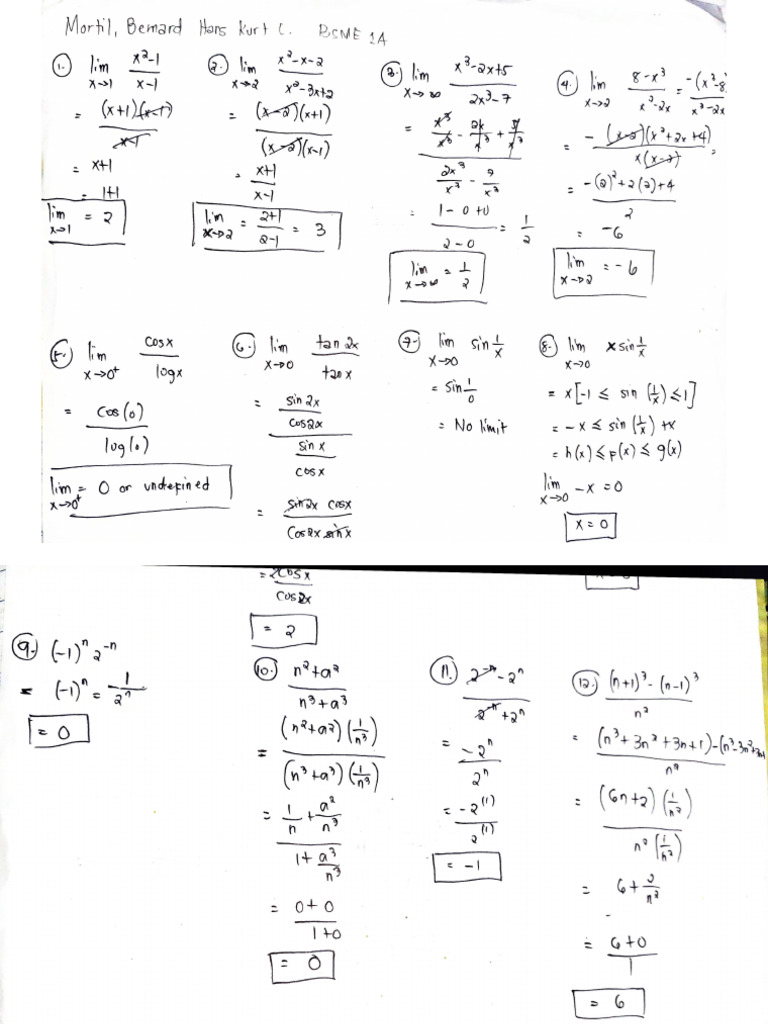 Mortil, Bernard Hans Kurt C. BSME 1A
1. lim x→1 x²-1 / x-1
= (x+1)(x-1) / x-1
= x+1
= 1+1
lim x→1 = 2
2. lim x→2 x²-x-2 / x²-3x+2
= (x-2)(x+1) / (x-2)(x-1)
= x+1 / x-1
lim x→2 = 2+1 / 2-1 = 3
3. lim x→∞ x³-2x+5 / 2x³-7
= x³/x³ - 2x/x³ + 5/x³ / 2x³/x³ - 7/x³
= 1-0+0 / 2-0 = 1/2
lim x→∞ = 1/2
4. lim x→2 8-x³ / x²-2x = -(x³-8) / x²-2x
= -(x-2)(x²+2x+4) / x(x-2) =
= -(2)²+2(2)+4 / 2
= -6
lim x→2 = -6
5. lim x→0⁺ cosx / logx
= cos(0) / log(0)
lim x→0⁺ = 0 or undefined
6. lim x→0 tan2x / tanx
= sin2x/cos2x / sinx/cosx
= sin2x cosx / cos2x sinx
= 2cosx / cos2x
= 2
7. lim x→0 sin 1/x
= sin 1/0
= No limit
8. lim x→0 x sin 1/x
= x[-1 ≤ sin (1/x) ≤ 1]
= -x ≤ sin (1/x) +x
= h(x) ≤ f(x) ≤ g(x)
lim x→0 -x = 0
x = 0
9. (-1)ⁿ 2⁻ⁿ
= (-1)ⁿ = -1/2ⁿ
= 0
10. n²+a² / n³+a³
= (n²+a²)(1/n³) / (n³+a³)(1/n³)
= 1/n + a²/n³ / 1+ a³/n³
= 0+0 / 1+0
= 0
11. 2⁻ⁿ-2ⁿ / 2⁻ⁿ+2ⁿ
= -2ⁿ / 2ⁿ
= -2⁽¹⁾ / 2⁽¹⁾
= -1
12. (n+1)³-(n-1)³ / n²
= (n³+3n²+3n+1)-(n³-3n²+3n / n²
= (6n+2)(1/n²) / n²(1/n²)
= 6+ 2/n²
= 6+0 / 1
= 6